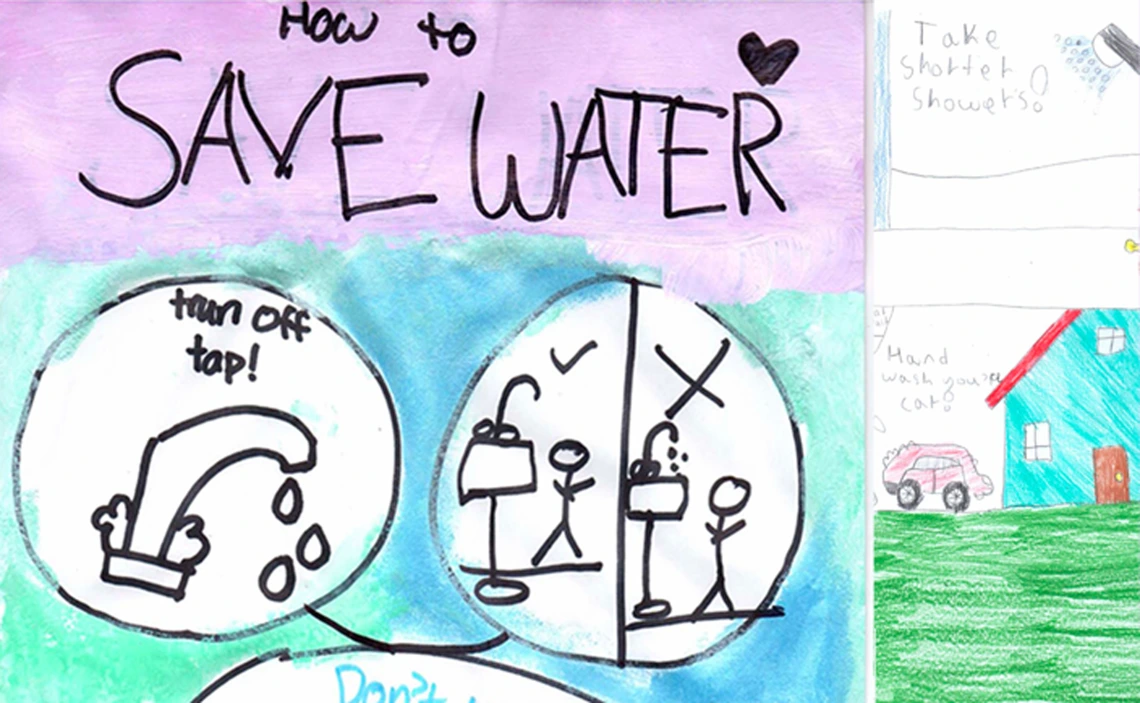 How to
SAVE WATER
trun off
tap!
Don't
Take
Shorter
Showers!
Hand
wash your
car!